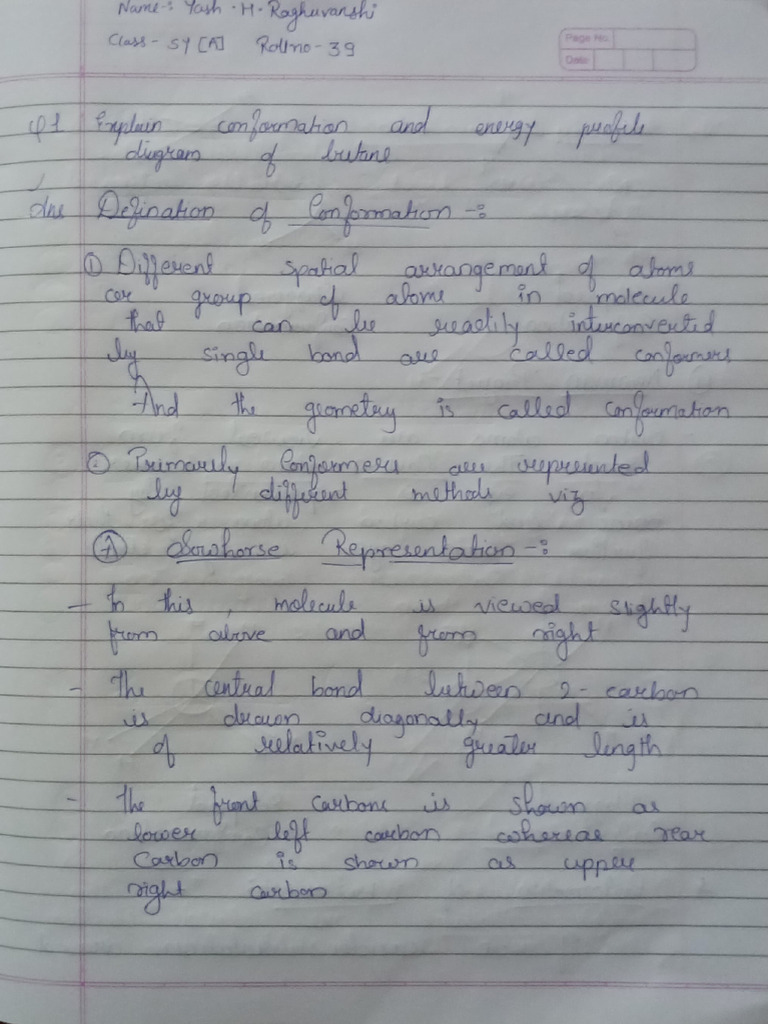 Name-: Yash . H. Raghuvanshi
Class - SY [A] Rollno - 39
Page No.
Date:
Q1 Explain conformation and energy profile
diagram of butane
Ans Defination of Conformation -:
① Different spatial arrangement of atoms
or group of atoms in molecule
that can be readily interconverted
by single bond are called conformers
And the geometry is called conformation
② Primarily Conformers are represented
by different methods viz
Ⓐ Sowhorse Representation -:
- In this, molecule is viewed slightly
from above and from right
- The central bond between 2-carbon
is drawn diagonally and is
of relatively greater length
- The front carbone is shown as
lower left carbon whereas rear
Carbon is shown as upper
right carbon